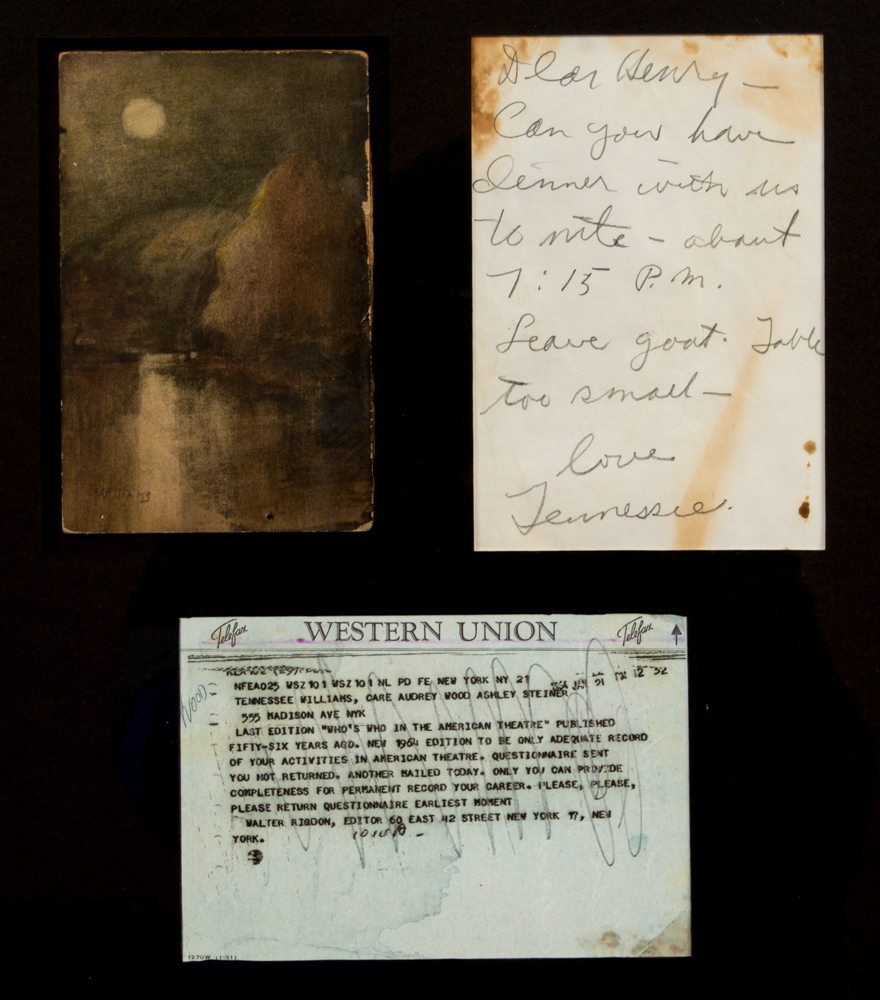 Dear Henry —
Can you have
dinner with us
to nite — about
7:15 P.M.
Leave goat. Table
too small —
love
Tennessee.
Telefax WESTERN UNION Telefax
NFEA025 WSZ101 WSZ101 NL PD FE NEW YORK NY 21
TENNESSEE WILLIAMS, CARE AUDREY WOOD ASHLEY STEINER
555 MADISON AVE NYK
LAST EDITION "WHO'S WHO IN THE AMERICAN THEATRE" PUBLISHED
FIFTY-SIX YEARS AGO. NEW 1964 EDITION TO BE ONLY ADEQUATE RECORD
OF YOUR ACTIVITIES IN AMERICAN THEATRE. QUESTIONNAIRE SENT
YOU NOT RETURNED. ANOTHER MAILED TODAY. ONLY YOU CAN PROVIDE
COMPLETENESS FOR PERMANENT RECORD YOUR CAREER. PLEASE, PLEASE,
PLEASE RETURN QUESTIONNAIRE EARLIEST MOMENT
WALTER RIGDON, EDITOR 60 EAST 42 STREET NEW YORK 17, NEW
YORK.
WOOD
1270W (1-51)